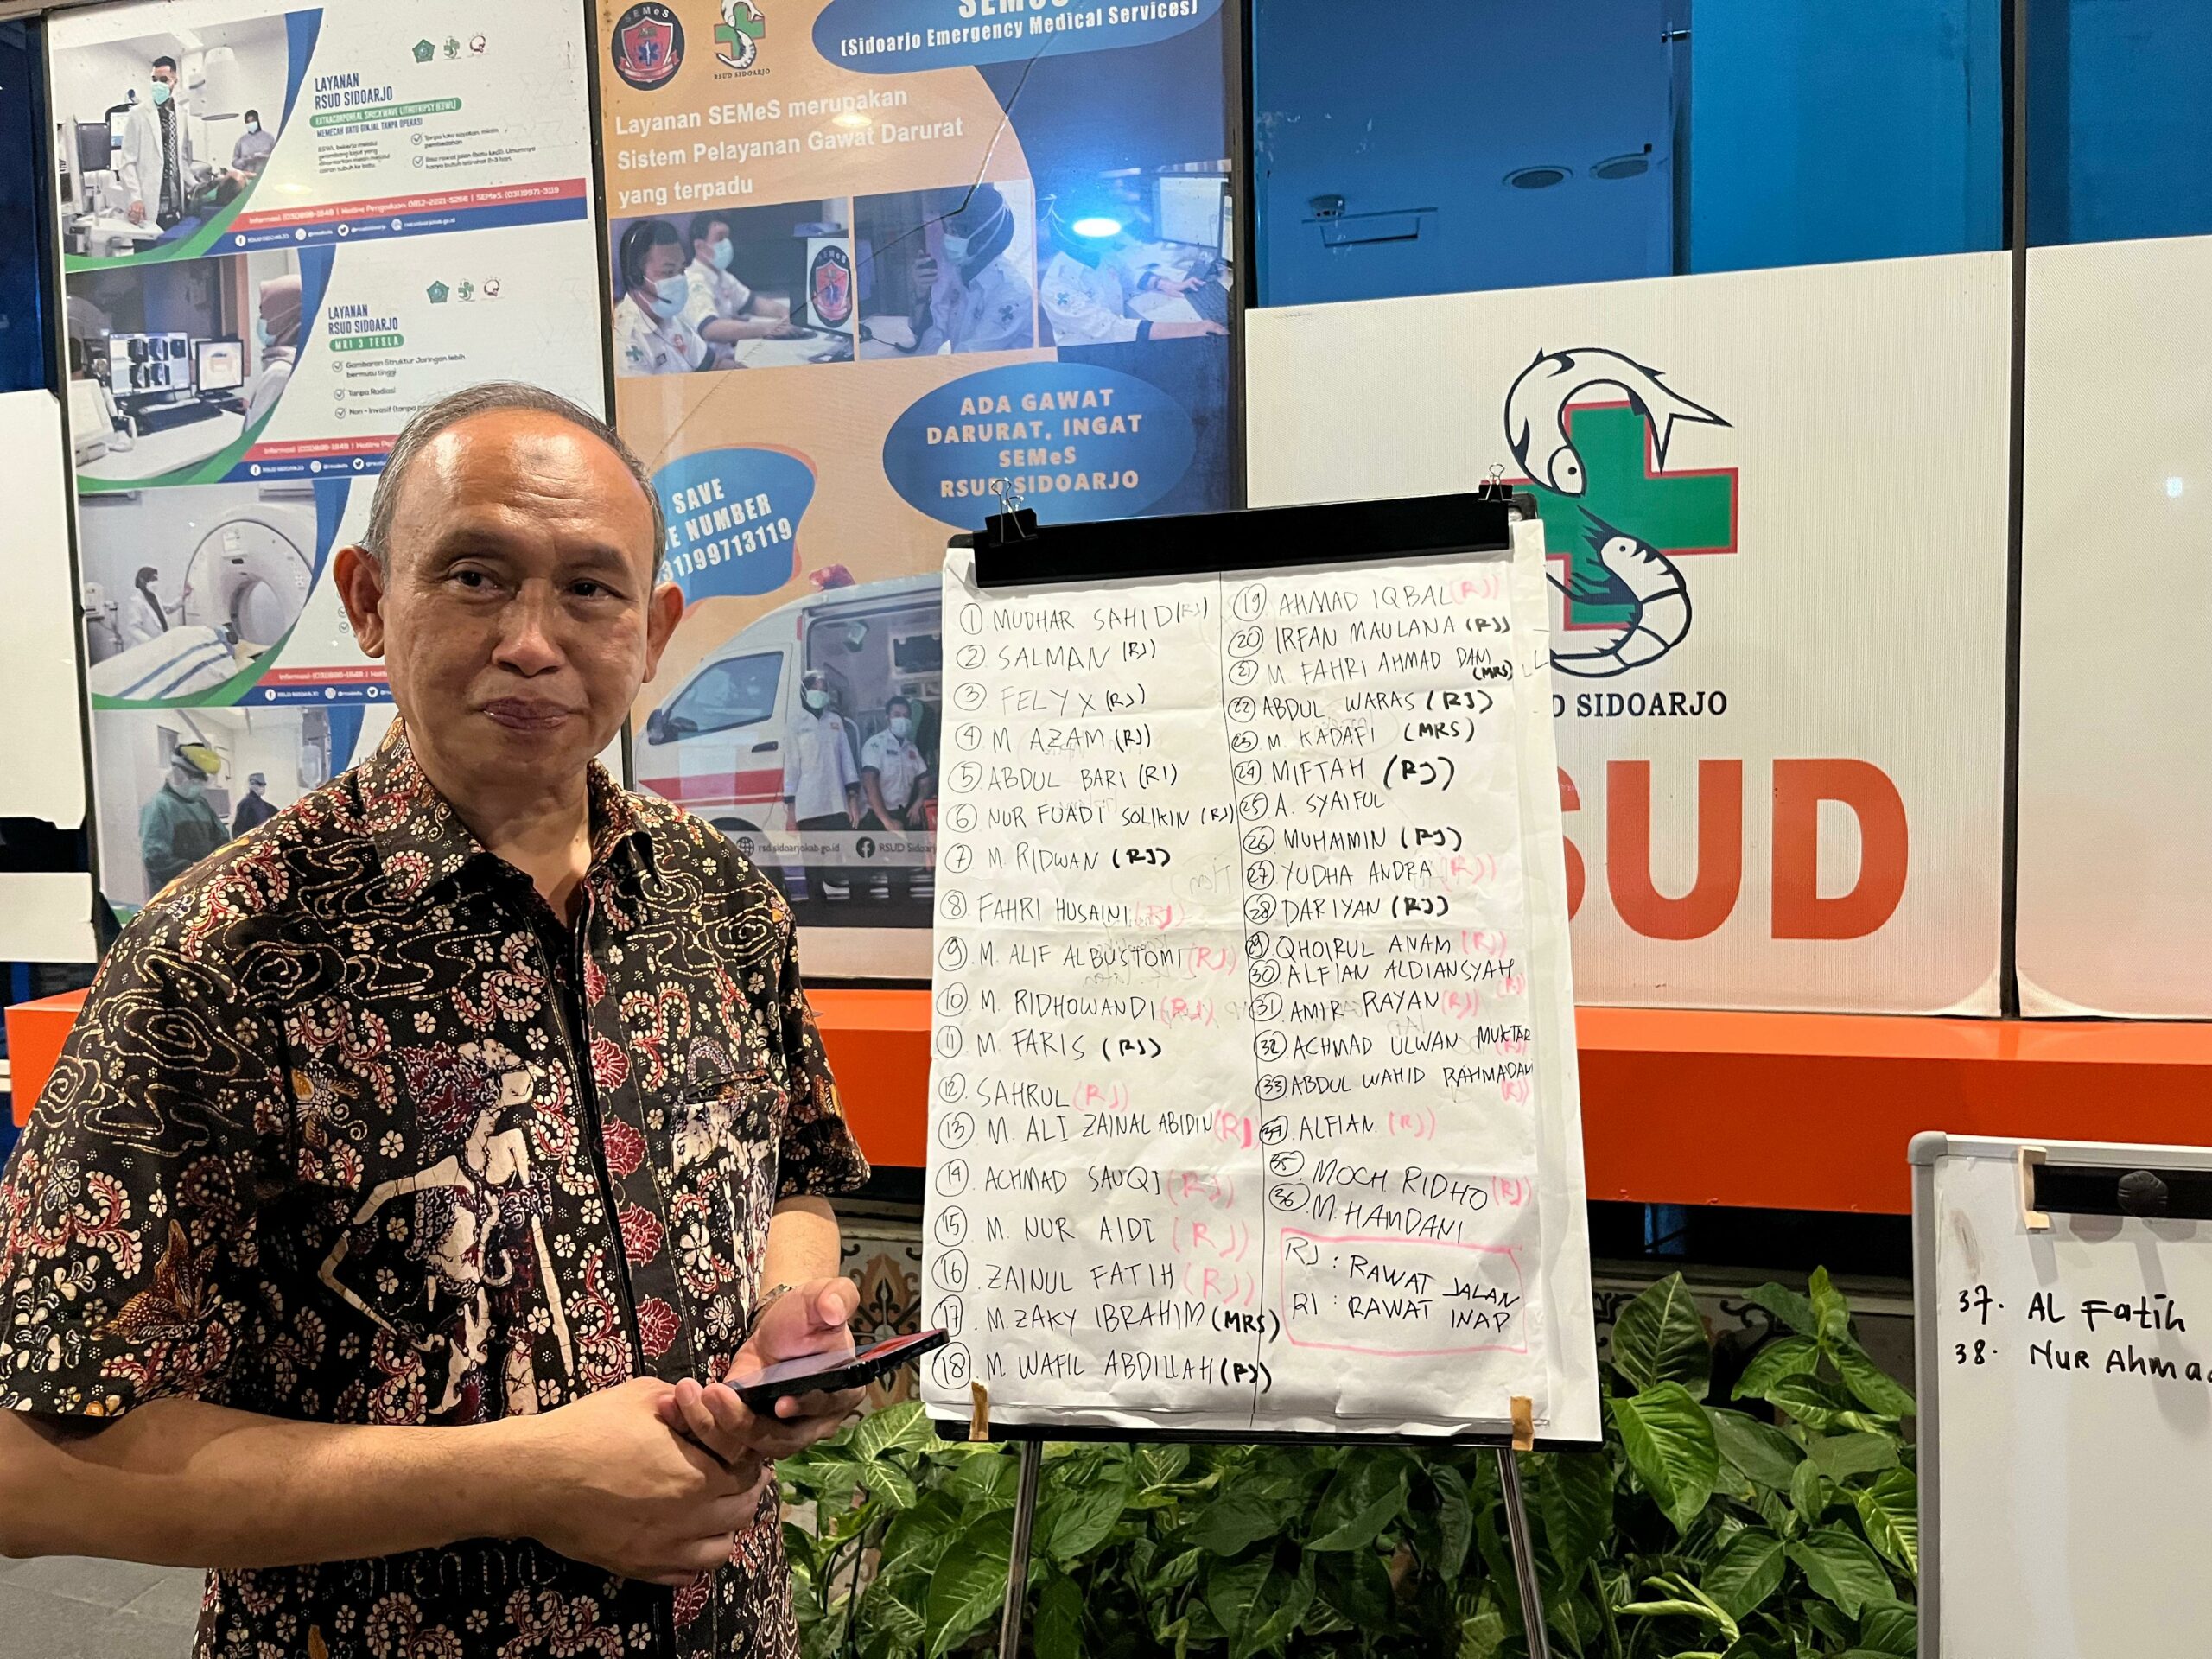 LAYANAN
RSUD SIDOARJO
EXTRACORPOREAL SHOCKWAVE LITHOTRIPSY (ESWL)
MEMECAH BATU GINJAL TANPA OPERASI
LAYANAN
RSUD SIDOARJO
MRI 3 TESLA
Gambaran Struktur Jaringan lebih
bermutu tinggi
Tanpa Radiasi
SEMeS
RSUD SIDOARJO
(Sidoarjo Emergency Medical Services)
Layanan SEMeS merupakan
Sistem Pelayanan Gawat Darurat
yang terpadu
ADA GAWAT
DARURAT, INGAT
SEMeS
RSUD SIDOARJO
SAVE
NUMBER
31)99713119
rsd.sidoarjokab.go.id
RSUD Sidoarj
D SIDOARJO
SUD
1. MUDHAR SAHID (RJ)
2. SALMAN (RJ)
3. FELYX (RJ)
4. M. AZAM (RJ)
5. ABDUL BARI (RI)
6. NUR FUADI SOLIKIN (RJ)
7. M. RIDWAN (RJ)
8. FAHRI HUSAINI (RJ)
9. M. ALIF ALBUSTOMI (RJ)
10. M. RIDHOWANDI (RJ)
11. M. FARIS (RJ)
12. SAHRUL (RJ)
13. M. ALI ZAINAL ABIDIN (RJ)
14. ACHMAD SAUQI (RJ)
15. M. NUR AIDI (RJ)
16. ZAINUL FATIH (RJ)
17. M. ZAKY IBRAHIM (MRS)
18. M. WAFIL ABDILLAH (RJ)
19. AHMAD IQBAL (RJ)
20. IRFAN MAULANA (RJ)
21. M. FAHRI AHMAD DANI
(MRS)
22. ABDUL WARAS (RJ)
23. M. KADAFI (MRS)
24. MIFTAH (RJ)
25. A. SYAIFUL
26. MUHAIMIN (RJ)
27. YUDHA ANDRA (RJ)
28. DARIYAN (RJ)
29. QHOIRUL ANAM (RJ)
30. ALFIAN ALDIANSYAH
(RJ)
31. AMIR RAYAN (RJ)
32. ACHMAD ULWAN MUKTAR
(RJ)
33. ABDUL WAHID RAHMADANI
(RJ)
34. ALFIAN (RJ)
35. MOCH. RIDHO (RJ)
36. M. HAMDANI
RJ : RAWAT JALAN
RI : RAWAT INAP
37. AL Fatih
38. Nur Ahma